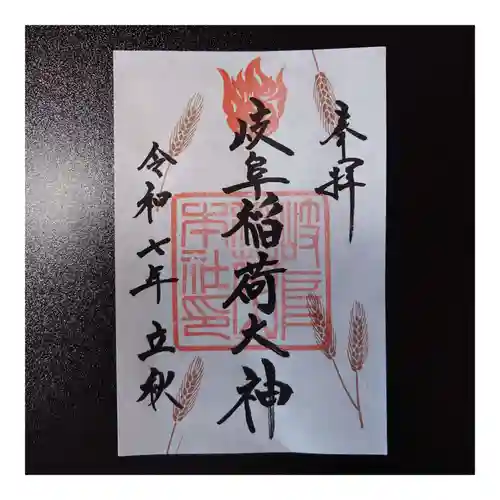 奉拝
岐阜稲荷大神
令和七年立秋